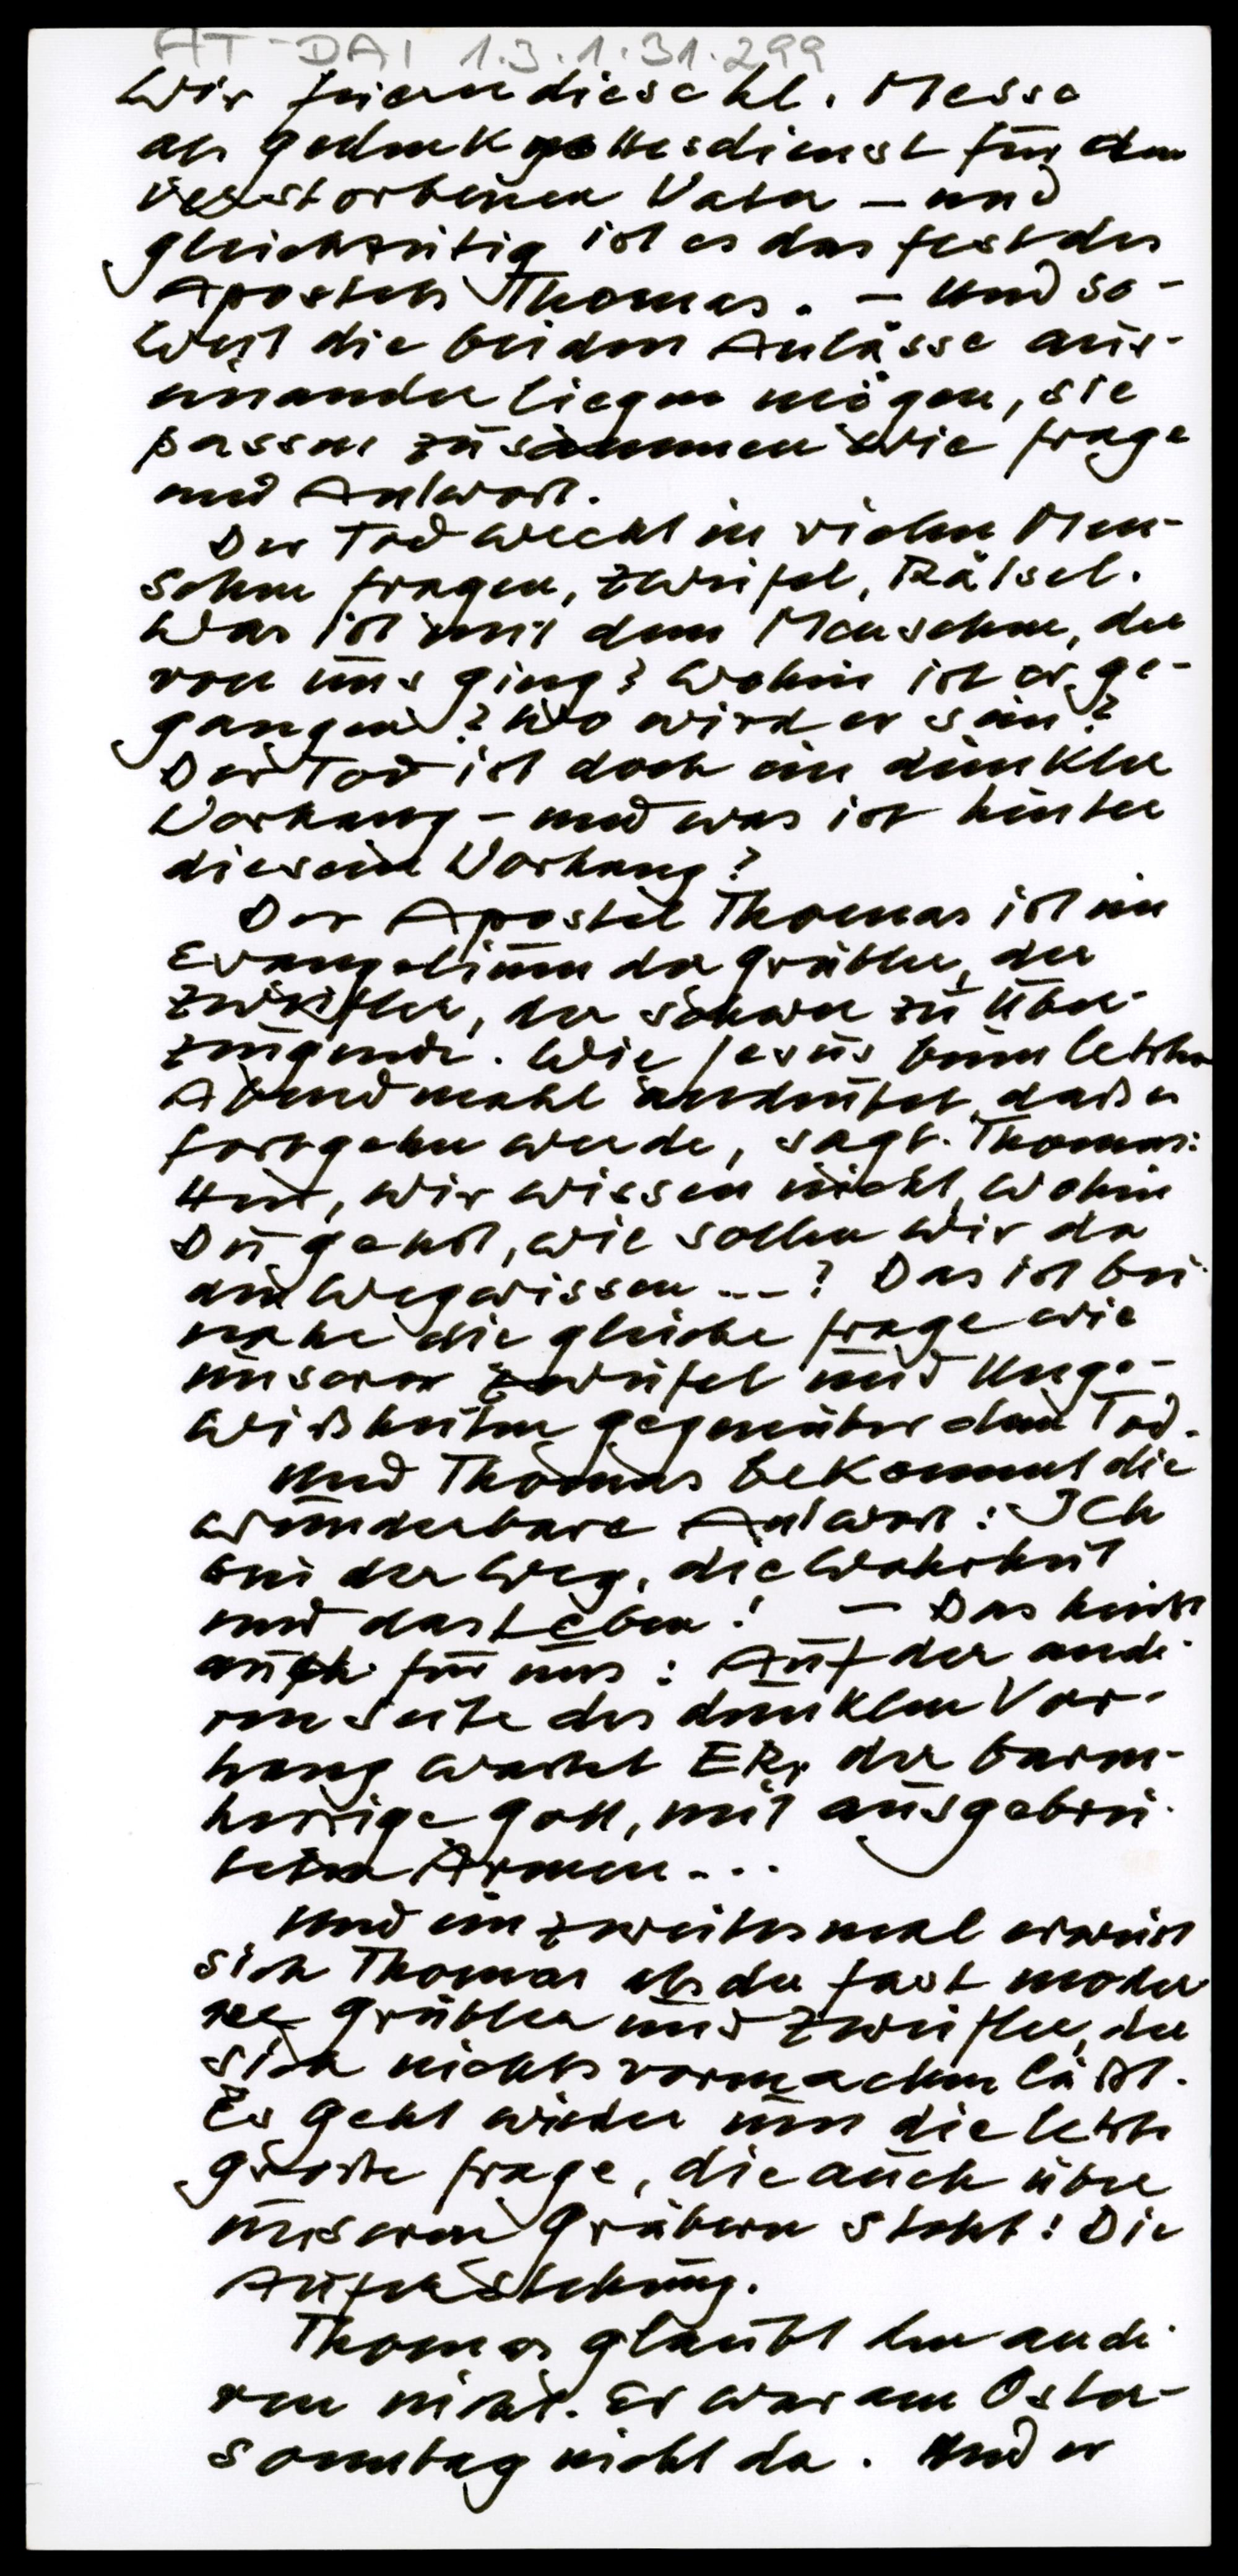 AT-DAI 1.3.1.31.299
Wir feiern diese hl. Messe
als Gedenkgottesdienst für den
verstorbenen Vater – und
gleichzeitig ist es das Fest des
Apostels Thomas. – Und so-
weit die beiden Anlässe aus-
einander liegen mögen, sie
passen zusammen wie Frage
und Antwort.
Der Tod weckt in vielen Men-
schen Fragen, Zweifel, Rätsel.
Was ist mit dem Menschen, der
von uns ging? Wohin ist er ge-
gangen? Wo wird er sein?
Der Tod ist doch ein dunkler
Vorhang – und was ist hinter
diesem Vorhang?
Der Apostel Thomas ist im
Evangelium der Grübler, der
Zweifler, der schwer zu Über-
zeugende. Wie Jesus beim letzten
Abendmahl andeutet, daß er
fortgehen werde, sagt Thomas:
Herr, wir wissen nicht, wohin
Du gehst, wie sollen wir da
den Weg wissen ---? Das ist bei-
nahe die gleiche Frage wie
unserer Zweifel und Unge-
wißheiten gegenüber dem Tod.
Und Thomas bekommt die
wunderbare Antwort: Ich
bin der Weg, die Wahrheit
und das Leben! – Das heißt
auch für uns: Auf der ande-
ren Seite des dunklen Vor-
hang wartet ER, der barm-
herzige Gott, mit ausgebrei-
teten Armen...
Und ein zweites mal erweist
sich Thomas als der fast moder
ne Grübler und Zweifler, der
sich nichts vormachen läßt.
Es geht wieder um die letzte
große Frage, die auch über
unseren Gräbern steht: Die
Auferstehung.
Thomas glaubt den ande-
ren nicht. Er war am Oster-
sonntag nicht da. Und er